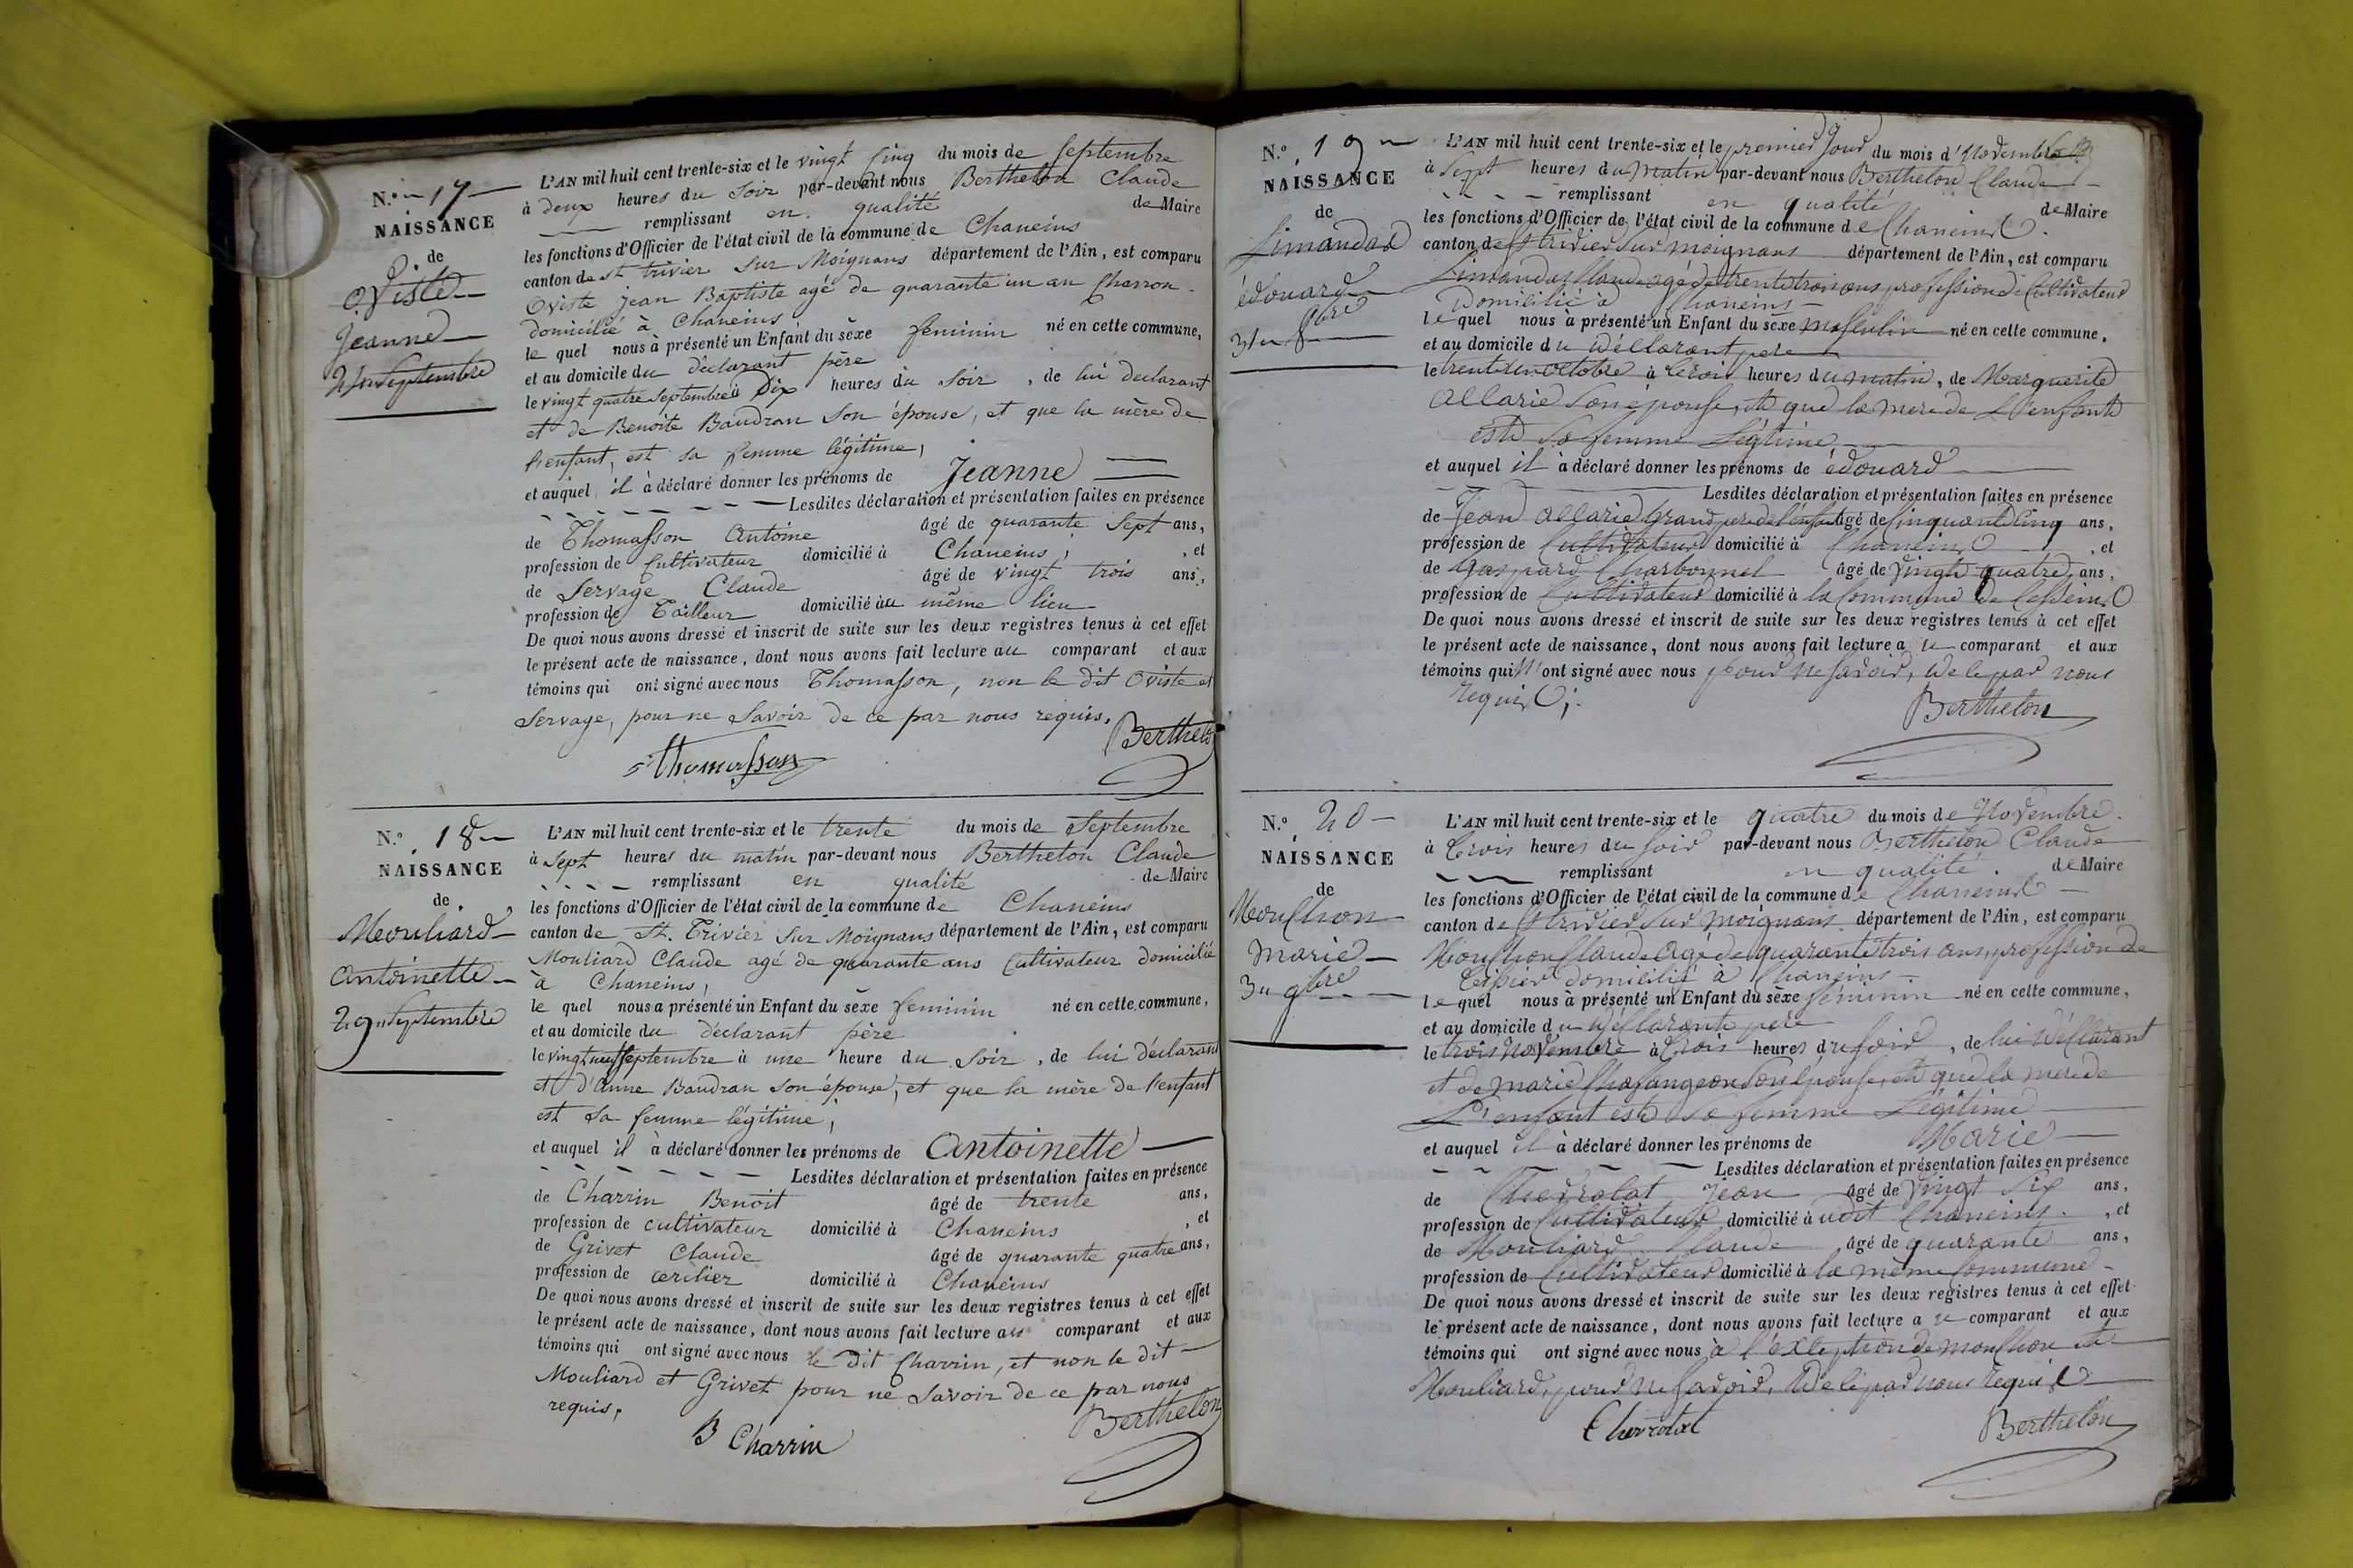 N.o 17
NAISSANCE
de
Oviste
Jeanne
24 Septembre
L'AN mil huit cent trente-six et le vingt cinq du mois de Septembre
à deux heures du Soir par-devant nous Berthelon Claude
remplissant en qualité de Maire
les fonctions d'Officier de l'état civil de la commune de Chaneins
canton de St trivier Sur Moignans département de l'Ain, est comparu
Oviste Jean Baptiste agé de quarante un an Charron
domicilié à Chaneins
le quel nous à présenté un Enfant du sèxe feminin né en cette commune,
et au domicile du déclarant père
le vingt quatre Septembre à Dix heures du Soir, de lui déclarant
et de Benoite Baudran Son épouse, et que la mère de
l'enfant, est sa femme légitime,
et auquel il à déclaré donner les prénoms de Jeanne
Lesdites déclaration et présentation faites en présence
de Thomasson Antoine âgé de quarante Sept ans,
profession de Cultivateur domicilié à Chaneins, et
de Servage Claude âgé de vingt trois ans,
profession de Tailleur domicilié au même lieu
De quoi nous avons dressé et inscrit de suite sur les deux registres tenus à cet effet
le présent acte de naissance, dont nous avons fait lecture au comparant et aux
témoins qui ont signé avec nous Thomasson, non le dit Oviste et
Servage, pour ne Savoir de ce par nous requis.
Thomasson Berthelon
N.o 18
NAISSANCE
de
Mouliard
Antoinette
29 Septembre
L'AN mil huit cent trente-six et le trente du mois de Septembre
à Sept heures du matin par-devant nous Berthelon Claude
remplissant en qualité de Maire
les fonctions d'Officier de l'état civil de la commune de Chaneins
canton de St. Trivier Sur Moignans département de l'Ain, est comparu
Mouliard Claude agé de quarante ans Cultivateur domicilié
à Chaneins,
le quel nous a présenté un Enfant du sèxe feminin né en cette commune,
et au domicile du déclarant père
le vingt neuf Septembre à une heure du Soir, de lui déclarant
et d'Anne Baudran Son épouse, et que la mère de l'enfant
est Sa femme légitime,
et auquel il à déclaré donner les prénoms de Antoinette
Lesdites déclaration et présentation faites en présence
de Charrin Benoit âgé de trente ans,
profession de cultivateur domicilié à Chaneins, et
de Grivet Claude âgé de quarante quatre ans,
profession de domicilié à Chaneins
De quoi nous avons dressé et inscrit de suite sur les deux registres tenus à cet effet
le présent acte de naissance, dont nous avons fait lecture au comparant et aux
témoins qui ont signé avec nous le dit Charrin, et non le dit
Mouliard et Grivet pour ne Savoir de ce par nous
requis,
B Charrin Berthelon
N.o 19
NAISSANCE
de
Limandas
édouard
31 8bre
L'AN mil huit cent trente-six et le premier Jour du mois d'Novembre
à Sept heures du matin par-devant nous Berthelon Claude
remplissant en qualité de Maire
les fonctions d'Officier de l'état civil de la commune de Chaneins
canton de St trivier Sur moignans département de l'Ain, est comparu
Limandas Claude agé de trente trois ans, profession de Cultivateur
Domicilié à Chaneins
le quel nous à présenté un Enfant du sèxe masculin né en cette commune,
et au domicile du déclarant pere
le trente un octobre à trois heures du matin, de Marguerite
Allarie Son épouse, et que la mere de L'enfant
est Sa femme Légitime
et auquel il à déclaré donner les prénoms de édouard
Lesdites déclaration et présentation faites en présence
de Jean Allarie Grand pere de l'enfant âgé de Cinquante Cinq ans,
profession de Cultivateur domicilié à Chaneins, et
de Gaspard Charbonnel âgé de Vingt quatre ans,
profession de Cultivateur domicilié à la Commune de
De quoi nous avons dressé et inscrit de suite sur les deux registres tenus à cet effet
le présent acte de naissance, dont nous avons fait lecture au comparant et aux
témoins qui N'ont signé avec nous pour ne Savoir, de Ce par nous
requis;
Berthelon
N.o 20
NAISSANCE
de
Mouchon
Marie
3 9bre
L'AN mil huit cent trente-six et le quatre du mois de Novembre
à trois heures du Soir par-devant nous Berthelon Claude
remplissant en qualité de Maire
les fonctions d'Officier de l'état civil de la commune de Chaneins
canton de St trivier Sur moignans département de l'Ain, est comparu
Mouchon Claude Agé de quarante trois ans, profession de
domicilié à Chaneins
le quel nous à présenté un Enfant du sèxe féminin né en cette commune,
et au domicile du déclarant pere
le trois Novembre à trois heures du soir, de lui déclarant
et de marie Chasangeon Son épouse, et que la mere de
L'enfant est Sa femme Légitime
et auquel il à déclaré donner les prénoms de Marie
Lesdites déclaration et présentation faites en présence
de Chevrolat Jean âgé de Vingt Six ans,
profession de Cultivateur domicilié à udit Chaneins, et
de Mouliard Claude âgé de quarante ans,
profession de Cultivateur domicilié à la même Commune
De quoi nous avons dressé et inscrit de suite sur les deux registres tenus à cet effet
le présent acte de naissance, dont nous avons fait lecture au comparant et aux
témoins qui ont signé avec nous à l'exception de mouchon et
Mouliard, pour ne Savoir, De Ce par nous requis
Chevrolat Berthelon